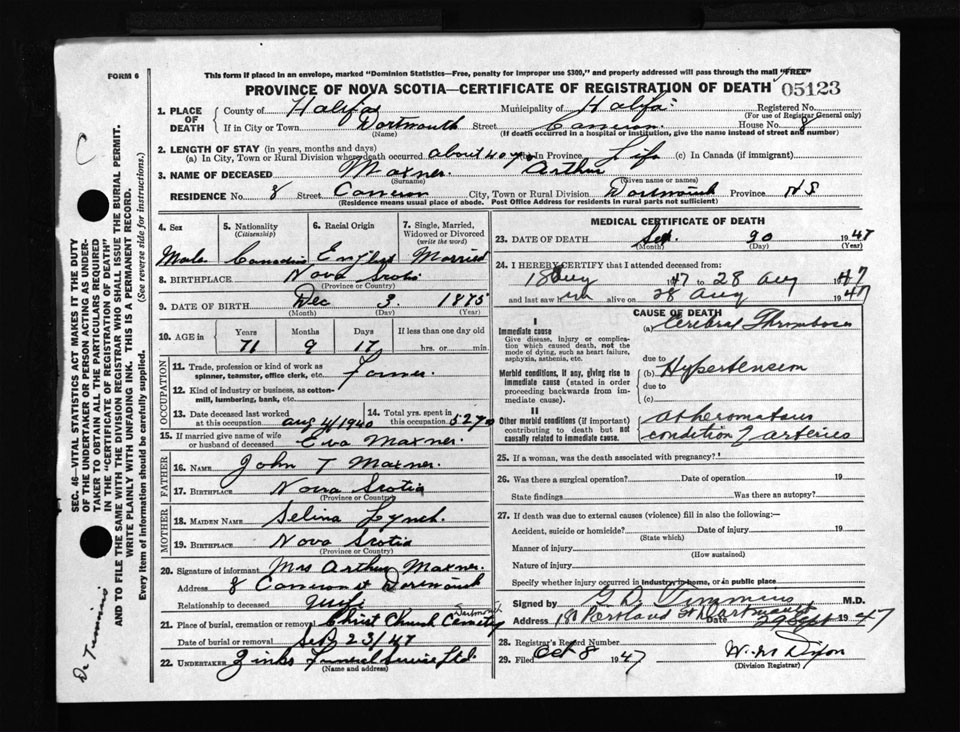 FORM 6
This form if placed in an envelope, marked "Dominion Statistics—Free, penalty for improper use $300," and properly addressed will pass through the mail "FREE"
PROVINCE OF NOVA SCOTIA—CERTIFICATE OF REGISTRATION OF DEATH 05123
1. PLACE OF DEATH County of Halifax Municipality of Halifax Registered No.
(For use of Registrar General only)
If in City or Town Dartmouth Street Cameron House No. 8
(Name) (If death occurred in a hospital or institution, give the name instead of street and number)
2. LENGTH OF STAY (in years, months and days)
(a) In City, Town or Rural Division where death occurred about 40 yrs In Province Life (c) In Canada (if immigrant)
3. NAME OF DECEASED Maxner. Arthur
(Surname) (Given name or names)
RESIDENCE No 8 Street Cameron City, Town or Rural Division Dartmouth Province N S
(Residence means usual place of abode. Post Office Address for residents in rural parts not sufficient)
4. Sex 5. Nationality (Citizenship) 6. Racial Origin 7. Single, Married, Widowed or Divorced (write the word)
Male Canadian English Married
8. BIRTHPLACE Nova Scotia
(Province or Country)
9. DATE OF BIRTH Dec 3 1875
(Month) (Day) (Year)
10. AGE in Years Months Days If less than one day
71 9 17 hrs. or min.
OCCUPATION
11. Trade, profession or kind of work as spinner, teamster, office clerk, etc.
12. Kind of industry or business, as cotton-mill, lumbering, bank, etc.
13. Date deceased last worked at this occupation Aug 4/1940
14. Total yrs. spent in this occupation
15. If married give name of wife or husband of deceased Eva Maxner.
FATHER
16. NAME John T Maxner.
17. BIRTHPLACE Nova Scotia
(Province or Country)
MOTHER
18. MAIDEN NAME Selina Lynch.
19. BIRTHPLACE Nova Scotia
(Province or Country)
20. Signature of informant Mrs Arthur Maxner.
Address 8 Cameron st Dartmouth
Relationship to deceased Wife
21. Place of burial, cremation or removal Christ Church Cemetery Dartmouth
Date of burial or removal Sept 23/47
22. UNDERTAKER Zinks Funeral Service Ltd.
(Name and address)
MEDICAL CERTIFICATE OF DEATH
23. DATE OF DEATH Sept. 20 1947
(Month) (Day) (Year)
24. I HEREBY CERTIFY that I attended deceased from:
18 Aug 1947 to 28 Aug 1947
and last saw him alive on 28 Aug 1947
CAUSE OF DEATH
I
Immediate cause (a) Cerebral Thrombosis
Give disease, injury or complication which caused death, not the mode of dying, such as heart failure, asphyxia, asthenia, etc.
due to
Morbid conditions, if any, giving rise to immediate cause (stated in order proceeding backwards from immediate cause). (b) Hypertension
due to
(c)
II
Other morbid conditions (if important) contributing to death but not causally related to immediate cause. atheromatous condition of arteries
25. If a woman, was the death associated with pregnancy?
26. Was there a surgical operation? Date of operation 19
State findings Was there an autopsy?
27. If death was due to external causes (violence) fill in also the following:—
Accident, suicide or homicide? Date of injury 19
(State which)
Manner of injury
(How sustained)
Nature of injury
Specify whether injury occurred in industry in home, or in public place
Signed by G. D. Timmins M.D.
Address Portland St Dartmouth Date 29 Sept 1947
28. Registrar's Record Number
29. Filed Oct 8 1947 W. M Dixon
(Division Registrar)
SEC. 46—VITAL STATISTICS ACT MAKES IT THE DUTY
OF THE UNDERTAKER OR PERSON ACTING AS UNDER-
TAKER TO OBTAIN ALL THE PARTICULARS REQUIRED
IN THE "CERTIFICATE OF REGISTRATION OF DEATH"
AND TO FILE THE SAME WITH THE DIVISION REGISTRAR WHO SHALL ISSUE THE BURIAL PERMIT.
WRITE PLAINLY WITH UNFADING INK. THIS IS A PERMANENT RECORD.
Every item of information should be carefully supplied. (See reverse side for instructions.)
C
Dr Timmins